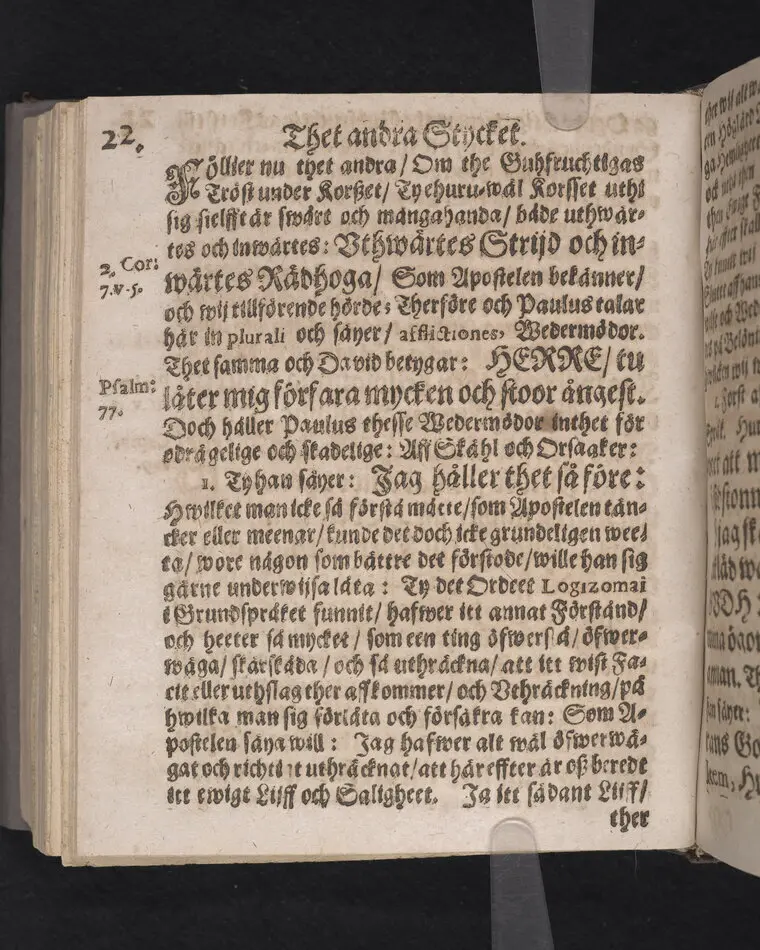 22.
Thet andra Stycket.
Föllier nu thet andra/ Om the Gudfruchtigas
Tröst under Korßet/ Tyehuru-wäl Korsset uthi
sig sielfft är swårt och mångahanda/ både uthwär-
tes och inwärtes: Uthwärtes Strijd och in-
2. Cor:
7. v. 5.
wärtes Rädhoga/ Som Apostelen bekänner/
och wij tillförende hörde; Therföre och Paulus talar
här in plurali och säyer/ afflictiones, Wedermödor.
Thet samma och David betygar: HERRE/ tu
Psalm:
77.
låter mig förfara mycken och stoor ångest.
Doch håller Paulus thesse Wedermödor inthet för
odrägelige och skadelige: Aff Skähl och Orsaaker:
1. Ty han säyer: Jag håller thet så före:
Hwilket man icke så förstå måtte/ som Apostelen tän-
cker eller meenar/ kunde det doch icke grundeligen wee-
ta/ wore någon som bättre det förstode/ wille han sig
gärne underwijsa låta: Ty det Ordeet Logizomai
i Grundspråket funnit/ hafwer itt annat Förstånd/
och heeter så mycket/ som een ting öfwerslå/ öfwer-
wäga/ skärskåda/ och så uthräckna/ att itt wist Fa-
cit eller uthslag ther aff kommer/ och Uthräckning/ på
hwilka man sig förlåta och försäkra kan: Som A-
postelen säya will: Jag hafwer alt wäl öfwerwä-
gat och uthräcknat/ att här effter är oß beredt
itt ewigt Lijff och Saligheet. Ja itt sådant Lijff/
ther